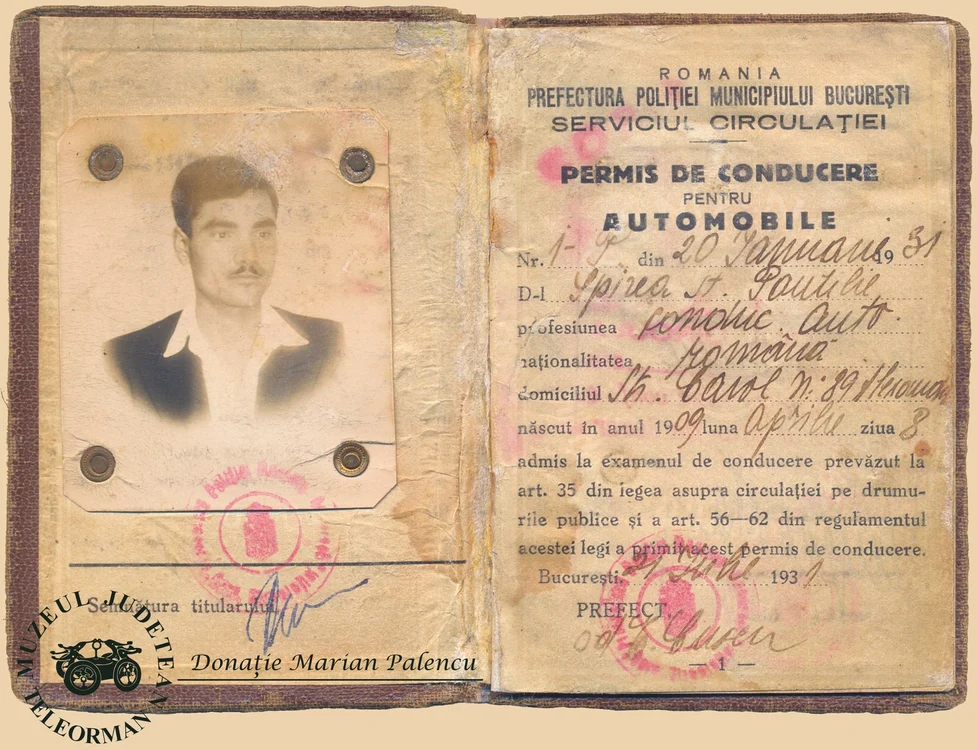 Semnătura titularului
MUZEUL JUDEȚEAN
TELEORMAN
Donație Marian Palencu
ROMANIA
PREFECTURA POLIȚIEI MUNICIPIULUI BUCUREȘTI
SERVICIUL CIRCULAȚIEI
PERMIS DE CONDUCERE
PENTRU
AUTOMOBILE
Nr. 1- din 20 Ianuarie 1931
D-l Spirea St. Pantilie
profesiunea conduc. auto.
naționalitatea română
domiciliul Str. Carol N: 89
născut în anul 1909 luna Aprilie ziua 8
admis la examenul de conducere prevăzut la
art. 35 din legea asupra circulației pe drumu-
rile publice și a art. 56—62 din regulamentul
acestei legi a primit acest permis de conducere.
București, 1931
PREFECT,
— 1 —